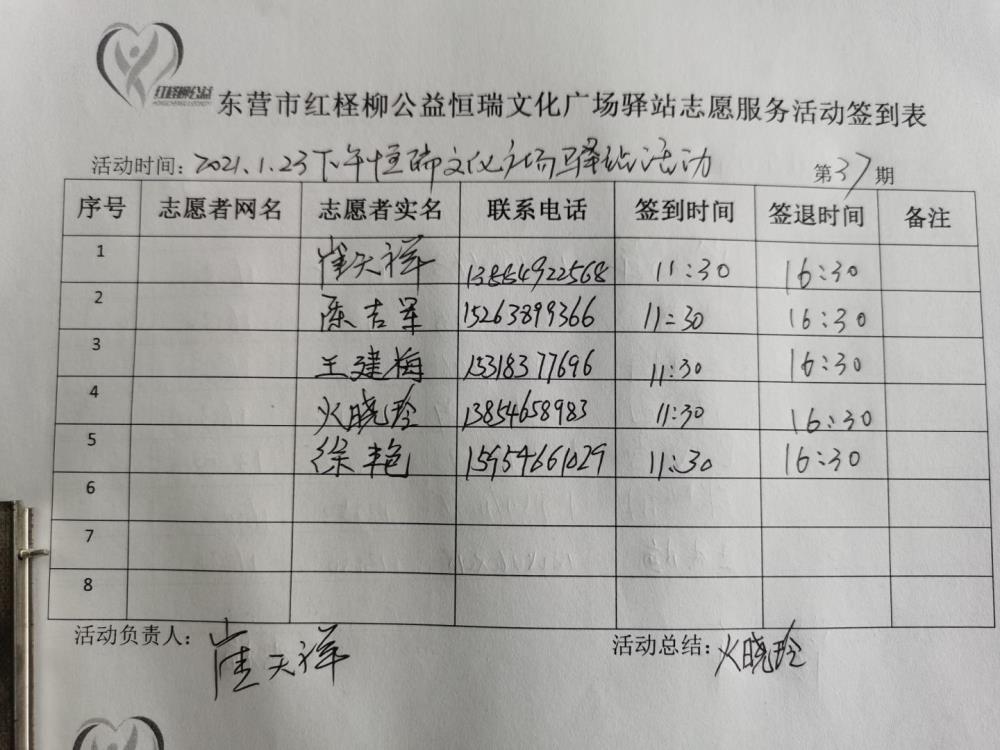 红柽柳公益
东营市红柽柳公益恒瑞文化广场驿站志愿服务活动签到表
活动时间：2021.1.23下午恒瑞文化广场驿站活动 第37期
序号 志愿者网名 志愿者实名 联系电话 签到时间 签退时间 备注
1 崔天祥 13884922568 11:30 16:30
2 陈吉军 15263899366 11:30 16:30
3 王建梅 15318377696 11:30 16:30
4 火晓玲 13854658983 11:30 16:30
5 徐艳 15954661029 11:30 16:30
6
7
8
活动负责人：崔天祥 活动总结：火晓玲